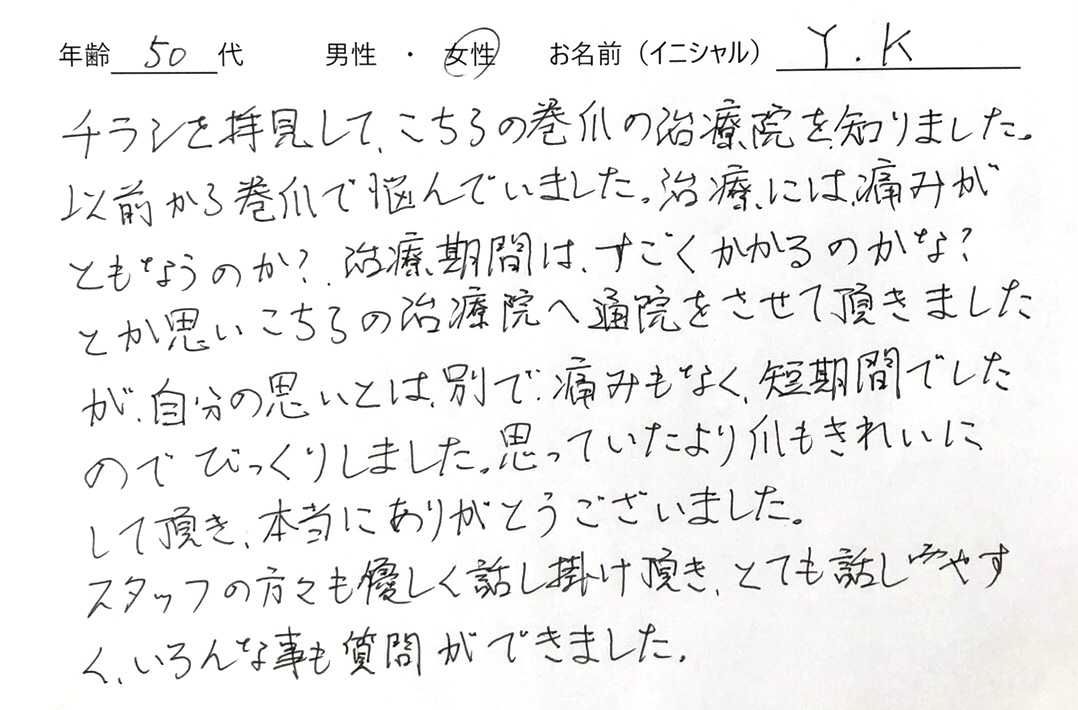 年齢 50 代 男性 ・ 女性 お名前（イニシャル） Y.K
チラシを拝見して、こちらの巻爪の治療院を知りました。
以前から巻爪で悩んでいました。治療には、痛みが
ともなうのか？治療期間は、すごくかかるのかな？
とか思いこちらの治療院へ通院をさせて頂きました
が、自分の思いとは、別で、痛みもなく、短期間でした
のでびっくりしました。思っていたより爪もきれいに
して頂き、本当にありがとうございました。
スタッフの方々も優しく話し掛け頂き、とても話しやす
く、いろんな事も質問ができました。